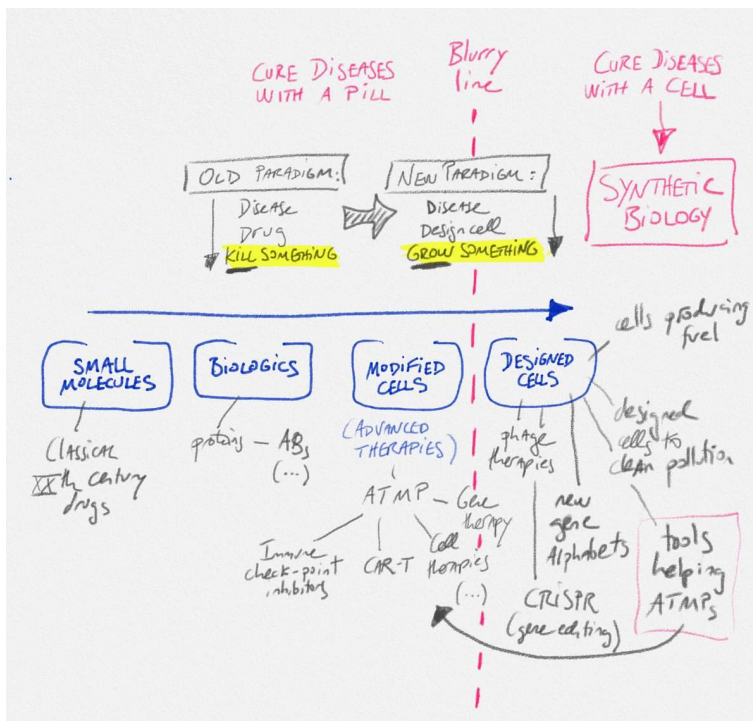 CURE DISEASES
WITH A PILL
Blurry
line
CURE DISEASES
WITH A CELL
OLD PARADIGM:
Disease
Drug
KILL SOMETHING
NEW PARADIGM:
Disease
Design cell
GROW SOMETHING
SYNTHETIC
BIOLOGY
SMALL
MOLECULES
BIOLOGICS
MODIFIED
CELLS
DESIGNED
CELLS
cells producing
fuel
Classical
XXth century
drugs
proteins — ABs
(...)
(ADVANCED
THERAPIES)
ATMP
Gene
therapy
Immune
check-point
inhibitors
CAR-T
Cell
therapies
(...)
phage
therapies
new
gene
Alphabets
CRISPR
(gene editing)
designed
cells to
clean pollution
tools
helping
ATMPs